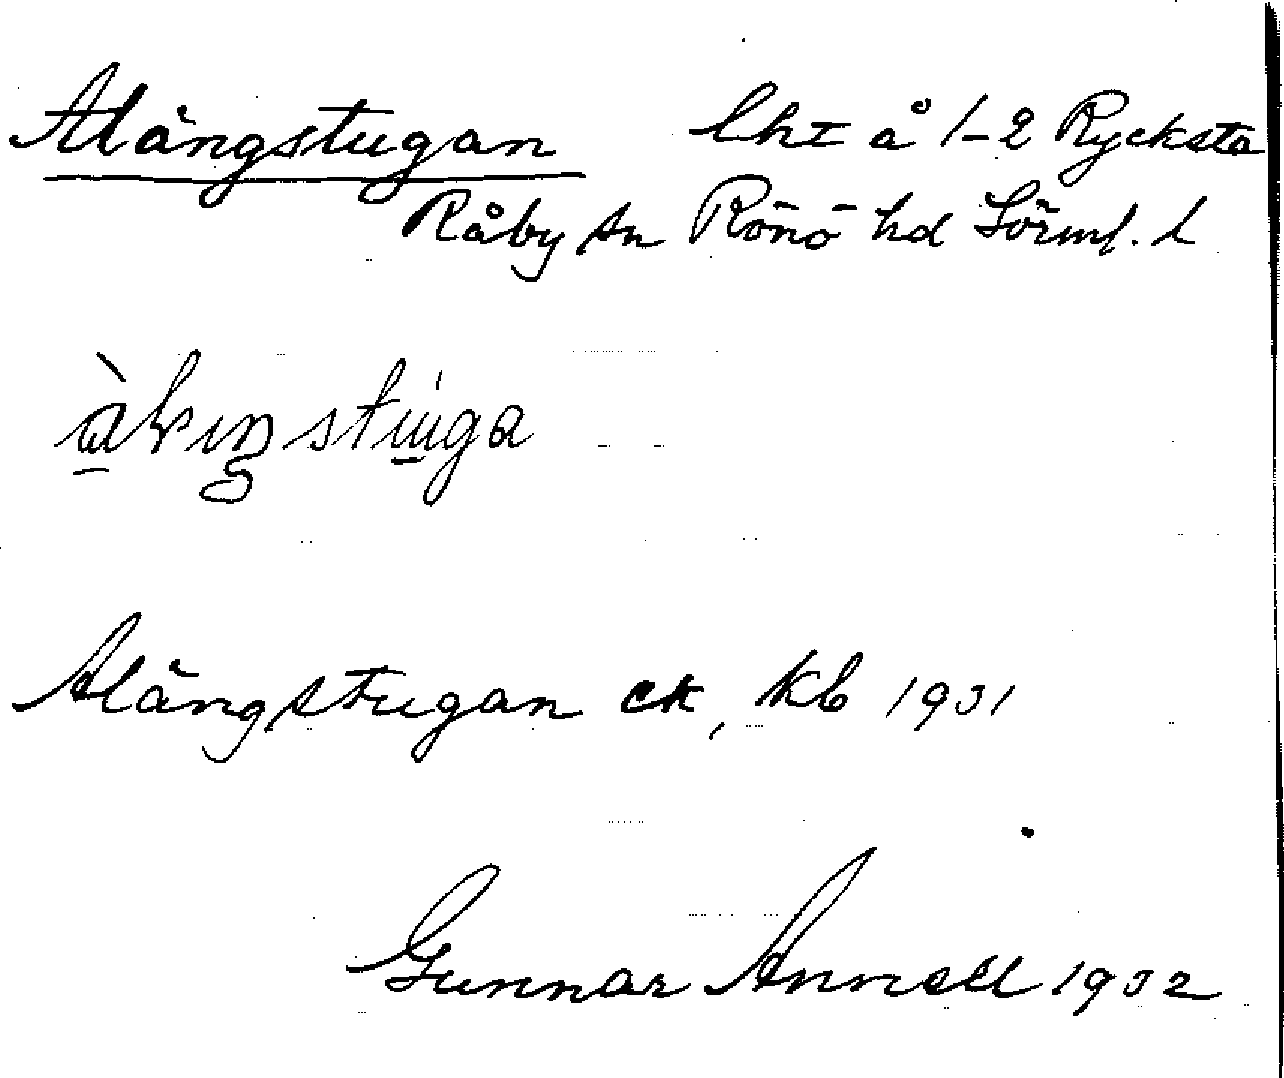 Alängstugan lht å 1-2 Rycksta
Råby sn Rönö hd Sörml. L
Alängstugan ek, kb 1931
Gunnar Annell 1932